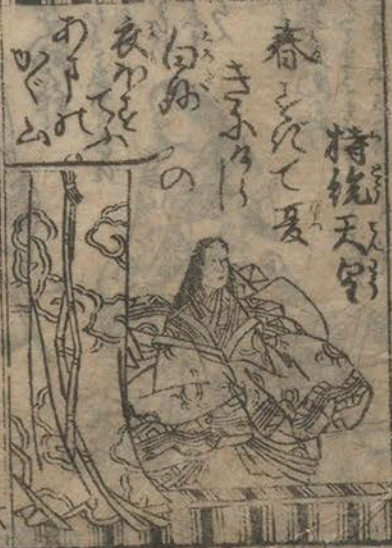 持統天皇
春すぎて夏
きにけらし
白妙の
衣ほすてふ
あまの
かぐ山